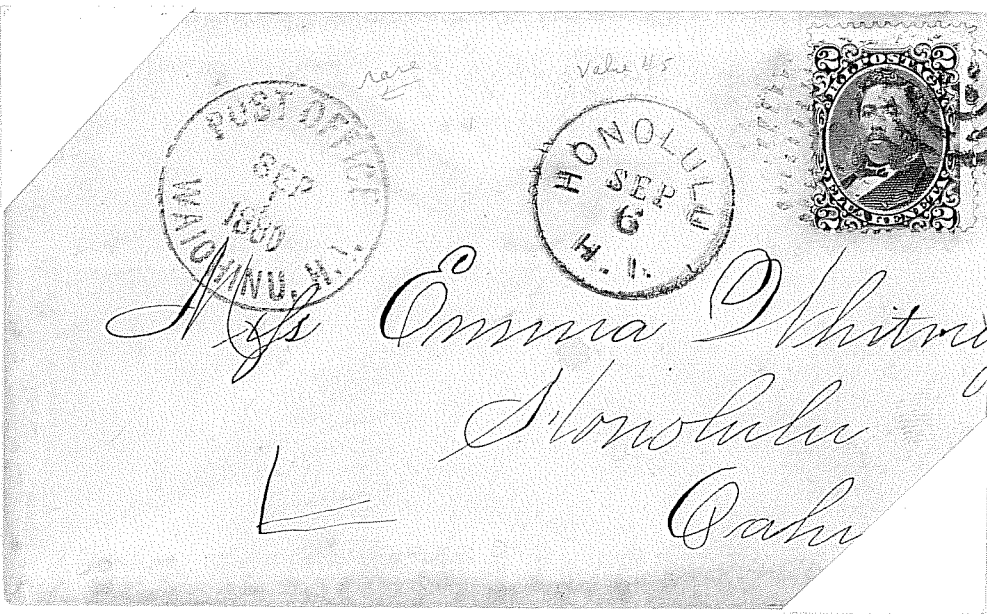 rare
Value 45
POST OFFICE
SEP
1
1880
WAIOHINU, H.I.
HONOLULU
SEP
6
H. I.
2 2
2 2
Miss Emma Whitney
Honolulu
Oahu